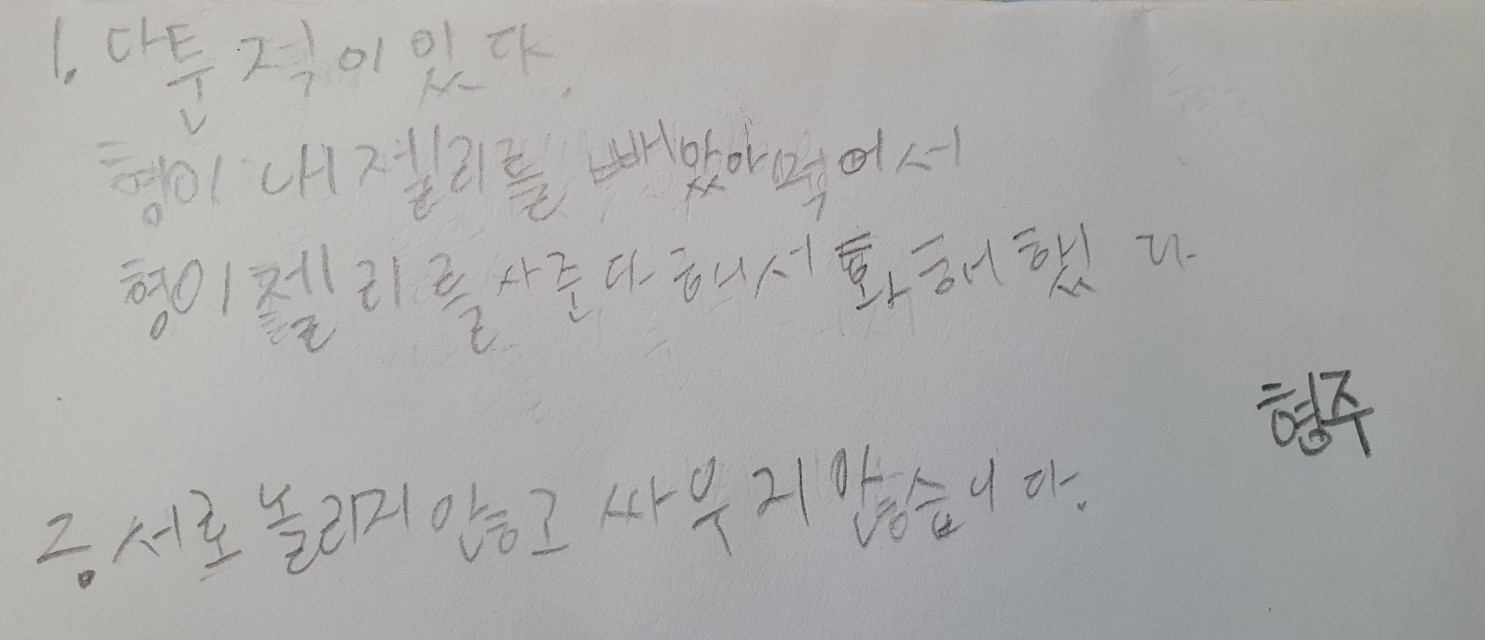 1. 다툰 적이 있다.
형이 내 젤리를 빼앗아 먹어서
형이 젤리를 사준다 해서 화해했다
형주
2. 서로 놀리지 안하고 싸우지 않습니다.